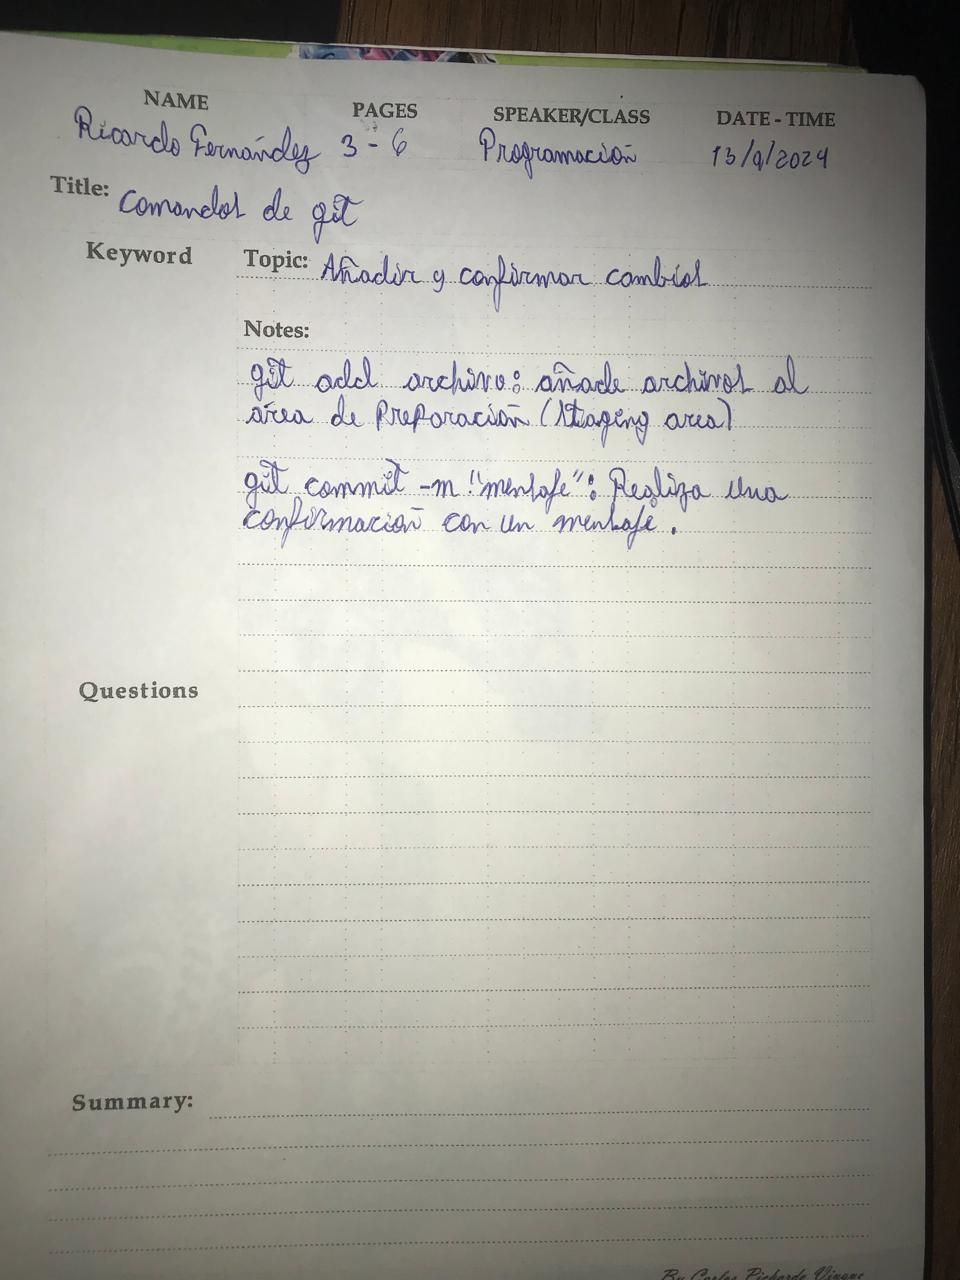 NAME PAGES SPEAKER/CLASS DATE - TIME
Ricardo Fernández 3 - 6 Programación 13/9/2024
Title: Comandos de git
Keyword Topic: Añadir y confirmar cambios
Notes:
git add archivo: añade archivos al
área de Preparación (Staging area)
git commit -m "mensaje": Realiza una
confirmación con un mensaje.
Questions
Summary:
By Carlos Pichardo